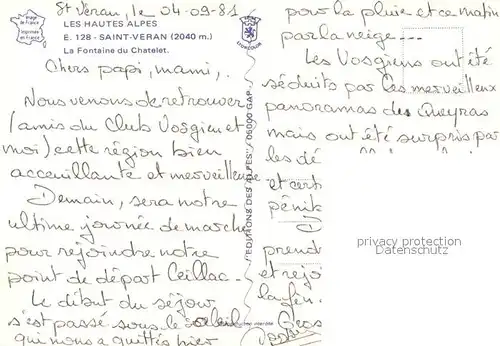 St Véran, le 04.09.81
Image de France
Imprimée en France
LES HAUTES ALPES
E. 128 - SAINT-VERAN (2040 m.)
La Fontaine du Chatelet.
LIONCOLOR
Chers papi, mami,.
Nous venons de retrouver
(amis du Club Vosgien et
moi) cette région bien
accueillante et merveilleuse.
Demain, sera notre
ultime journée de marche
pour rejoindre notre
point de départ Ceillac.
Le début du séjour
s'est passé sous le soleil
qui nous a quittés hier
"EDITIONS DES ALPES" 05000 GAP
pour la pluie et ce matin
par la neige---
Les Vosgiens ont été
séduits par les merveilleux
panoramas du Queyras
mais ont été surpris par
les dé
et cert
pénib
prend
et rejo
la fin.
Gros
privacy protection
Datenschutz